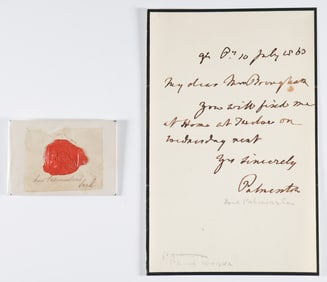 10 July 1863
My dear Mr
You will find me
at Home at Twelve on
Wednesday next
Yrs sincerely
Palmerston
Lord Palmerston
Lord Palmerston's
Seal